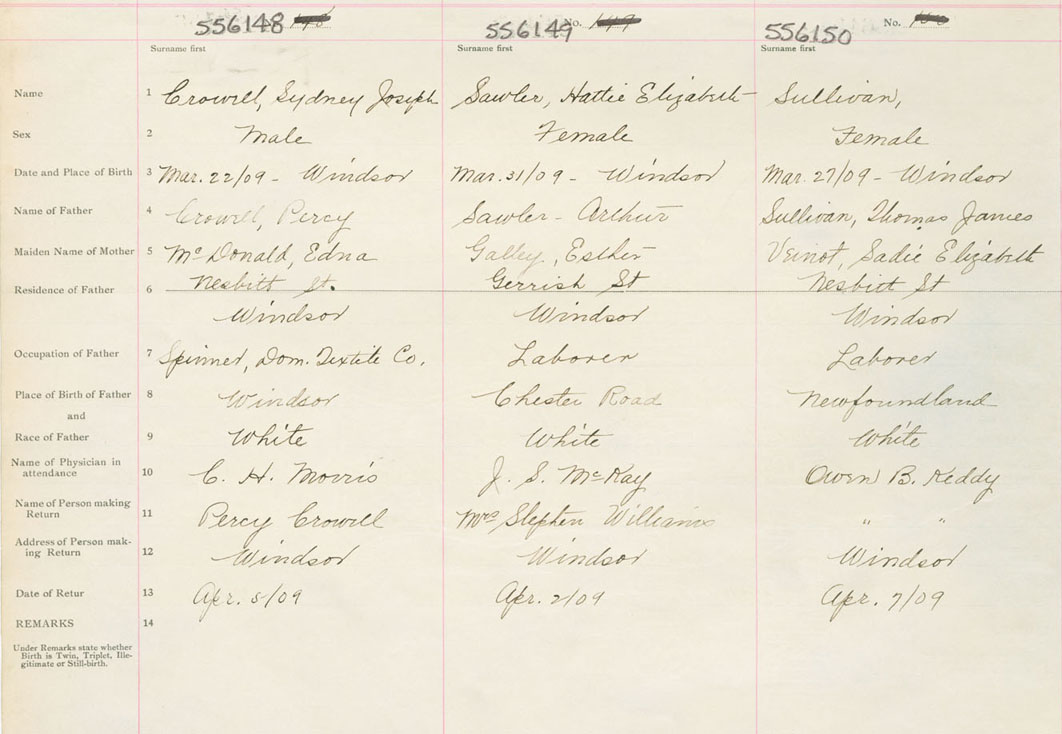 556148 556149 No. 556150 No.
Surname first Surname first Surname first
Name 1 Crowell, Sydney Joseph Sawler, Hattie Elizabeth Sullivan,
Sex 2 Male Female Female
Date and Place of Birth 3 Mar. 22/09 - Windsor Mar. 31/09 - Windsor Mar. 27/09 - Windsor
Name of Father 4 Crowell, Percy Sawler - Arthur Sullivan, Thomas James
Maiden Name of Mother 5 McDonald, Edna Galley, Esther Veinot, Sadie Elizabeth
Residence of Father 6 Nesbitt St. Gerrish St Nesbitt St
Windsor Windsor Windsor
Occupation of Father 7 Spinner, Dom. Textile Co. Laborer Laborer
Place of Birth of Father 8 Windsor Chester Road Newfoundland
and
Race of Father 9 White White White
Name of Physician in
attendance 10 C. H. Morris J. S. McKay Owen B. Keddy
Name of Person making
Return 11 Percy Crowell Mrs Stephen Williams " "
Address of Person mak-
ing Return 12 Windsor Windsor Windsor
Date of Retur 13 Apr. 5/09 Apr. 2/09 Apr. 7/09
REMARKS 14
Under Remarks state whether
Birth is Twin, Triplet, Ille-
gitimate or Still-birth.